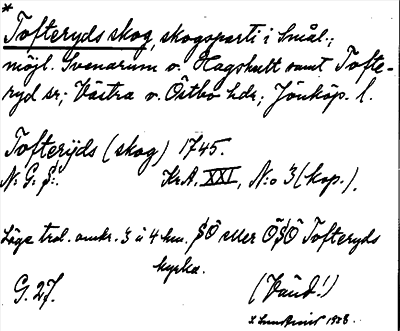 *
Tofteryds skog, skogsparti i Smål.;
möjl. Svenarum o. Hagshult samt Tofte-
ryd sr; Västra o. Östbo hdr; Jönköp. l.
Tofterÿds (skog) 1745.
N: G. S:. Kr.A. XXI, N:o 3 (kop.).
Läge trol. omkr. 3 à 4 km. SÖ eller ÖSÖ Tofteryds
kyrka.
G. 27. (Vänd!)
1928.